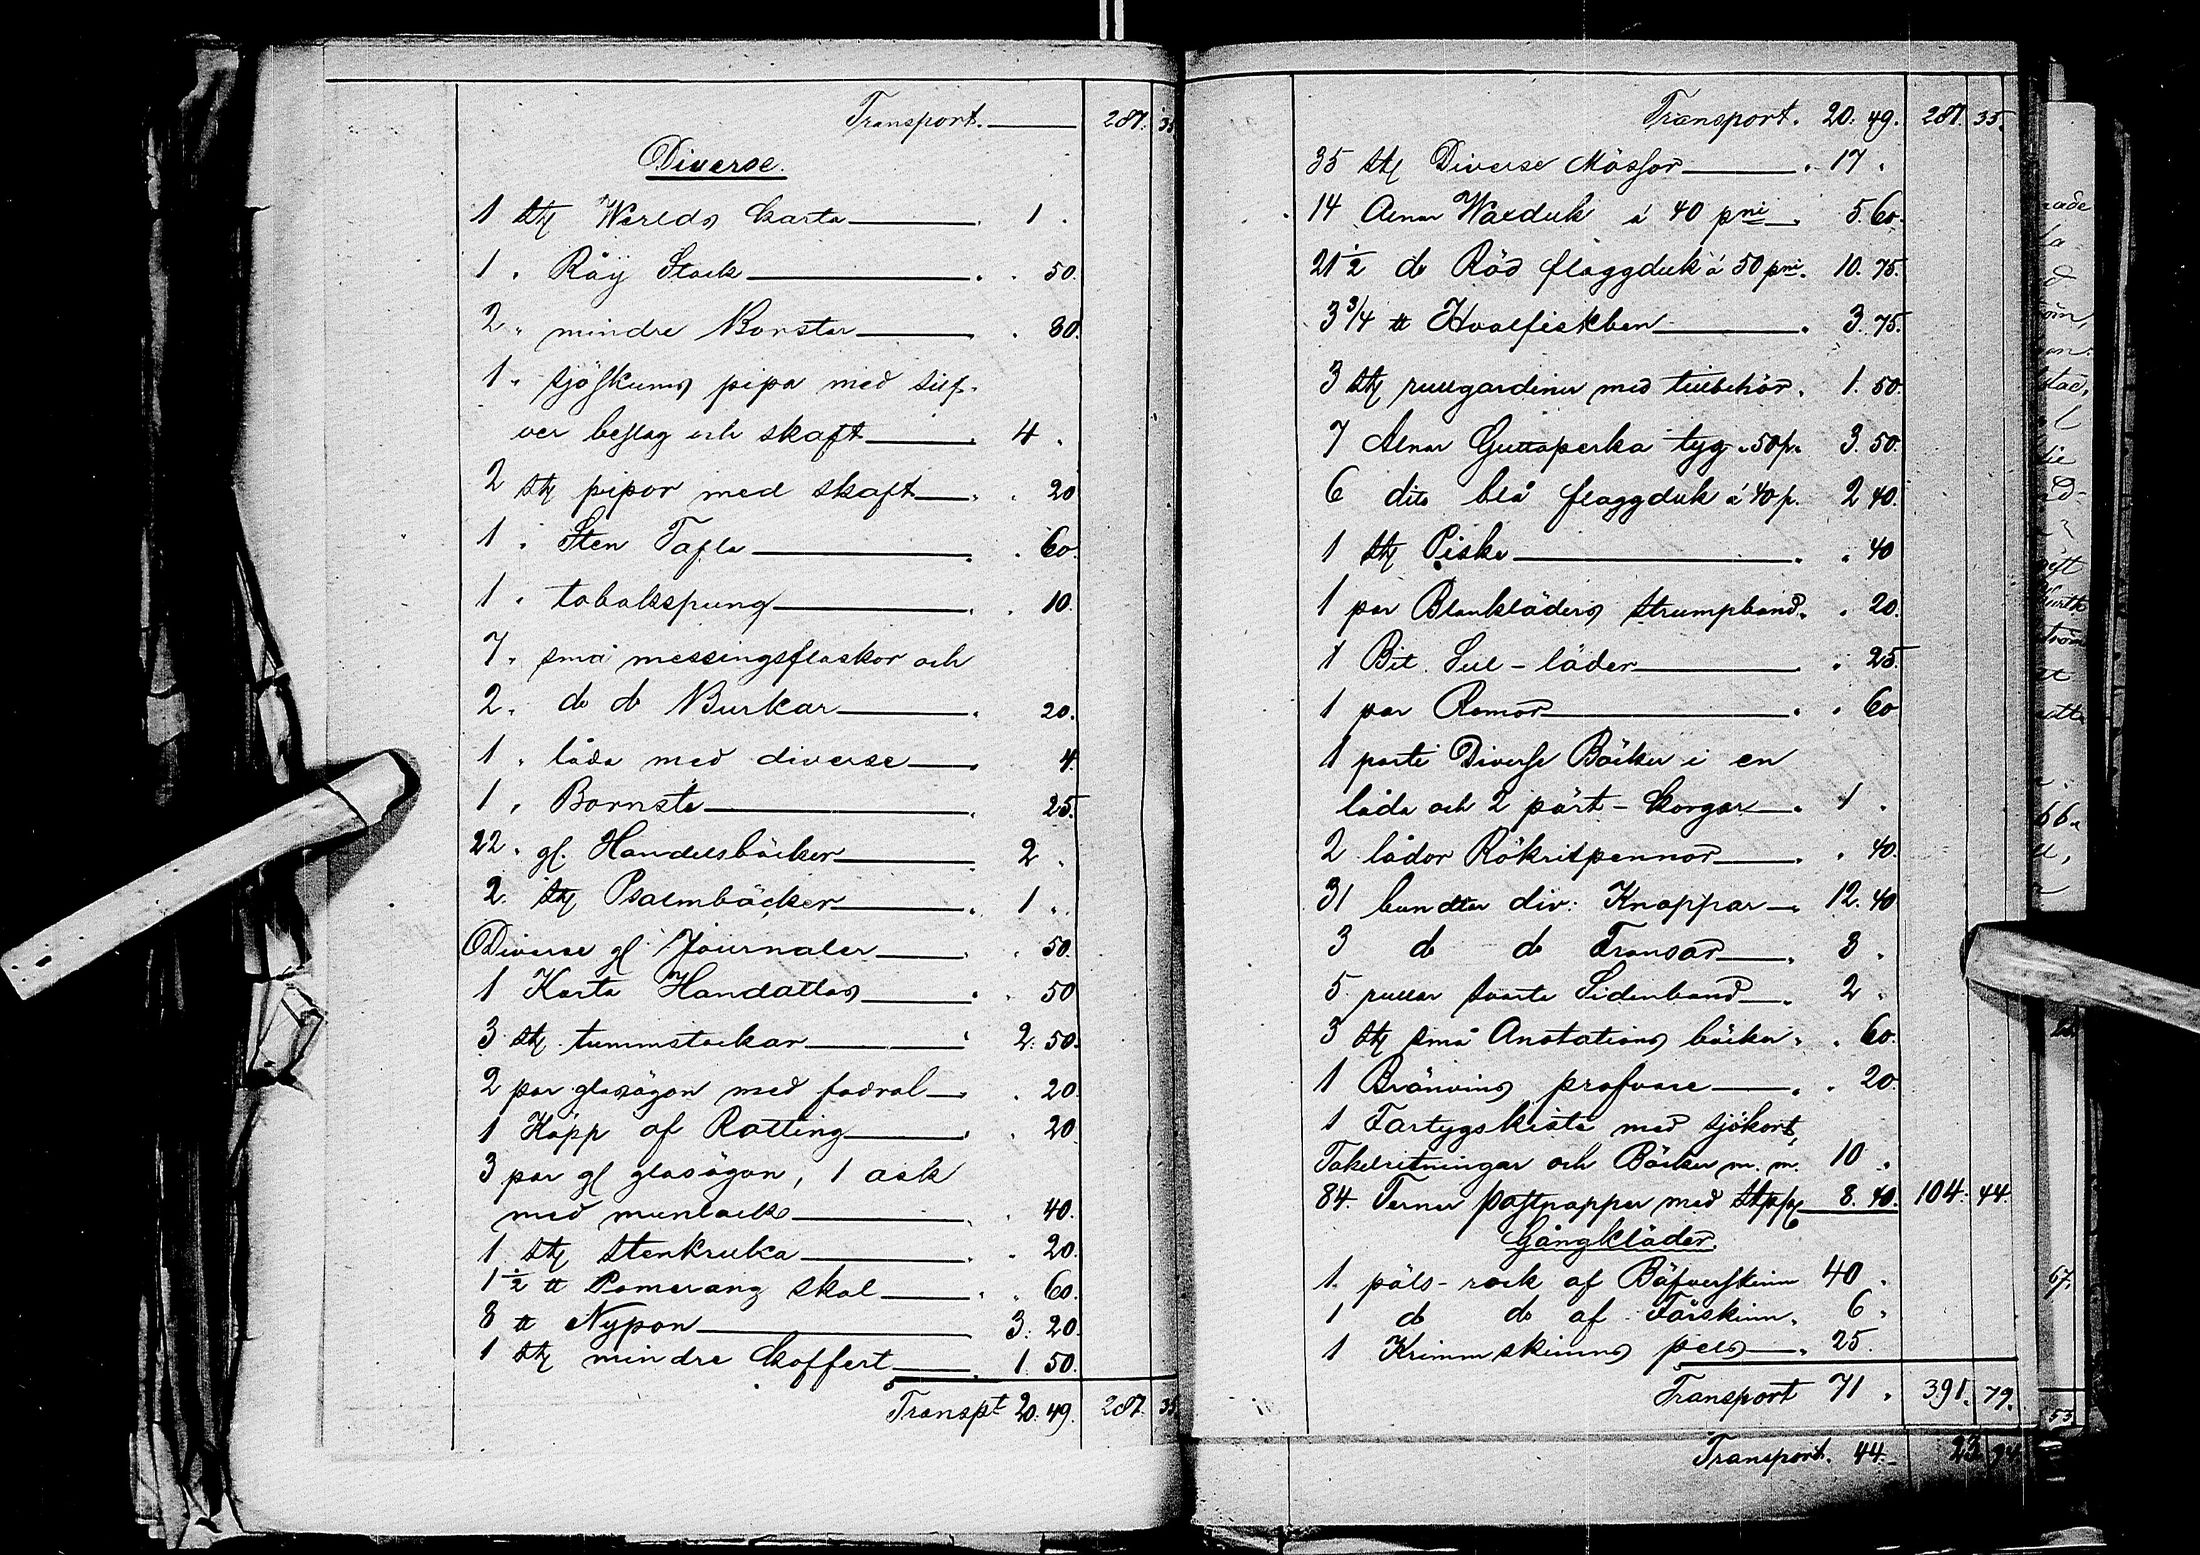 Transport. 287. 35
Diverse.
1 stg Werlds karta 1.
1 " Råÿ Stock " 50.
2 " mindre Borstar " 30.
1 " sjöskums pipa med silf-
ver beslag och skaft 4 "
2 stg pipor med skaft " 20
1 " Sten Tafla " 60.
1 " tobakspung " 10.
7 " små messingsflaskor och
2 " do do Burkar 20.
1 " låda med diverse 4.
1 " Borste 25.
22 " gl. Handelsböcker 2 "
2 stg Psalmböcker 1 "
Diverse gl Journaler " 50.
1 Karta Handattlas " 50
3 stg tummstockar 2. 50.
2 par glasögon med fodral " 20.
1 Käpp af Rotting " 20.
3 par gl glasögon, 1 ask
med munlack " 40.
1 stg stenkruka " 20.
1½ ℔ Pomerang skal " 60.
8 ℔ Nypon 3. 20.
1 stg mindre koffert 1. 50.
Transpt 20. 49. 287. 35
Transport. 20. 49. 287. 35.
35 stg Diverse Mössor " 17 "
14 Alnar Waxduk á 40 pni 5. 60.
21½ do Röd flaggduk á 50 pni. 10. 75.
3¾ ℔ Hvalfiskben 3. 75.
3 stg rullgardiner med tillbehör. 1. 50.
7 Alnar Guttaperka tyg " 50 p. 3. 50.
6 dito blå flaggduk á 40 p. 2 40.
1 stg Piska " 40
1 par Blankläders strumpband " 20.
1 Bit Sul-läder " 25.
1 par Remor " 60
1 parti Diverse Böcker i en
låda och 2 pärt-korgar 1 "
2 lådor Rökritpennor " 40.
31 bundter div: Knappar 12. 40
3 do do Fransar 3 "
5 rullar svarta Sidenband 2 "
3 stg små Anotations böcker " 60.
1 Bränvins profvare " 20.
1 Fartygskista med sjökort,
Takelritningar och Böcker m. m. 10 "
84. Ferner postpapper med 8. 40. 104. 44.
Gångkläder.
1. päls-rock af Bäfverskinn 40 "
1 do do af Fårskinn. 6 "
1 Krimmskinns pels 25.
Transport 71 " 391. 79.
Transport. 44.- 23. 94